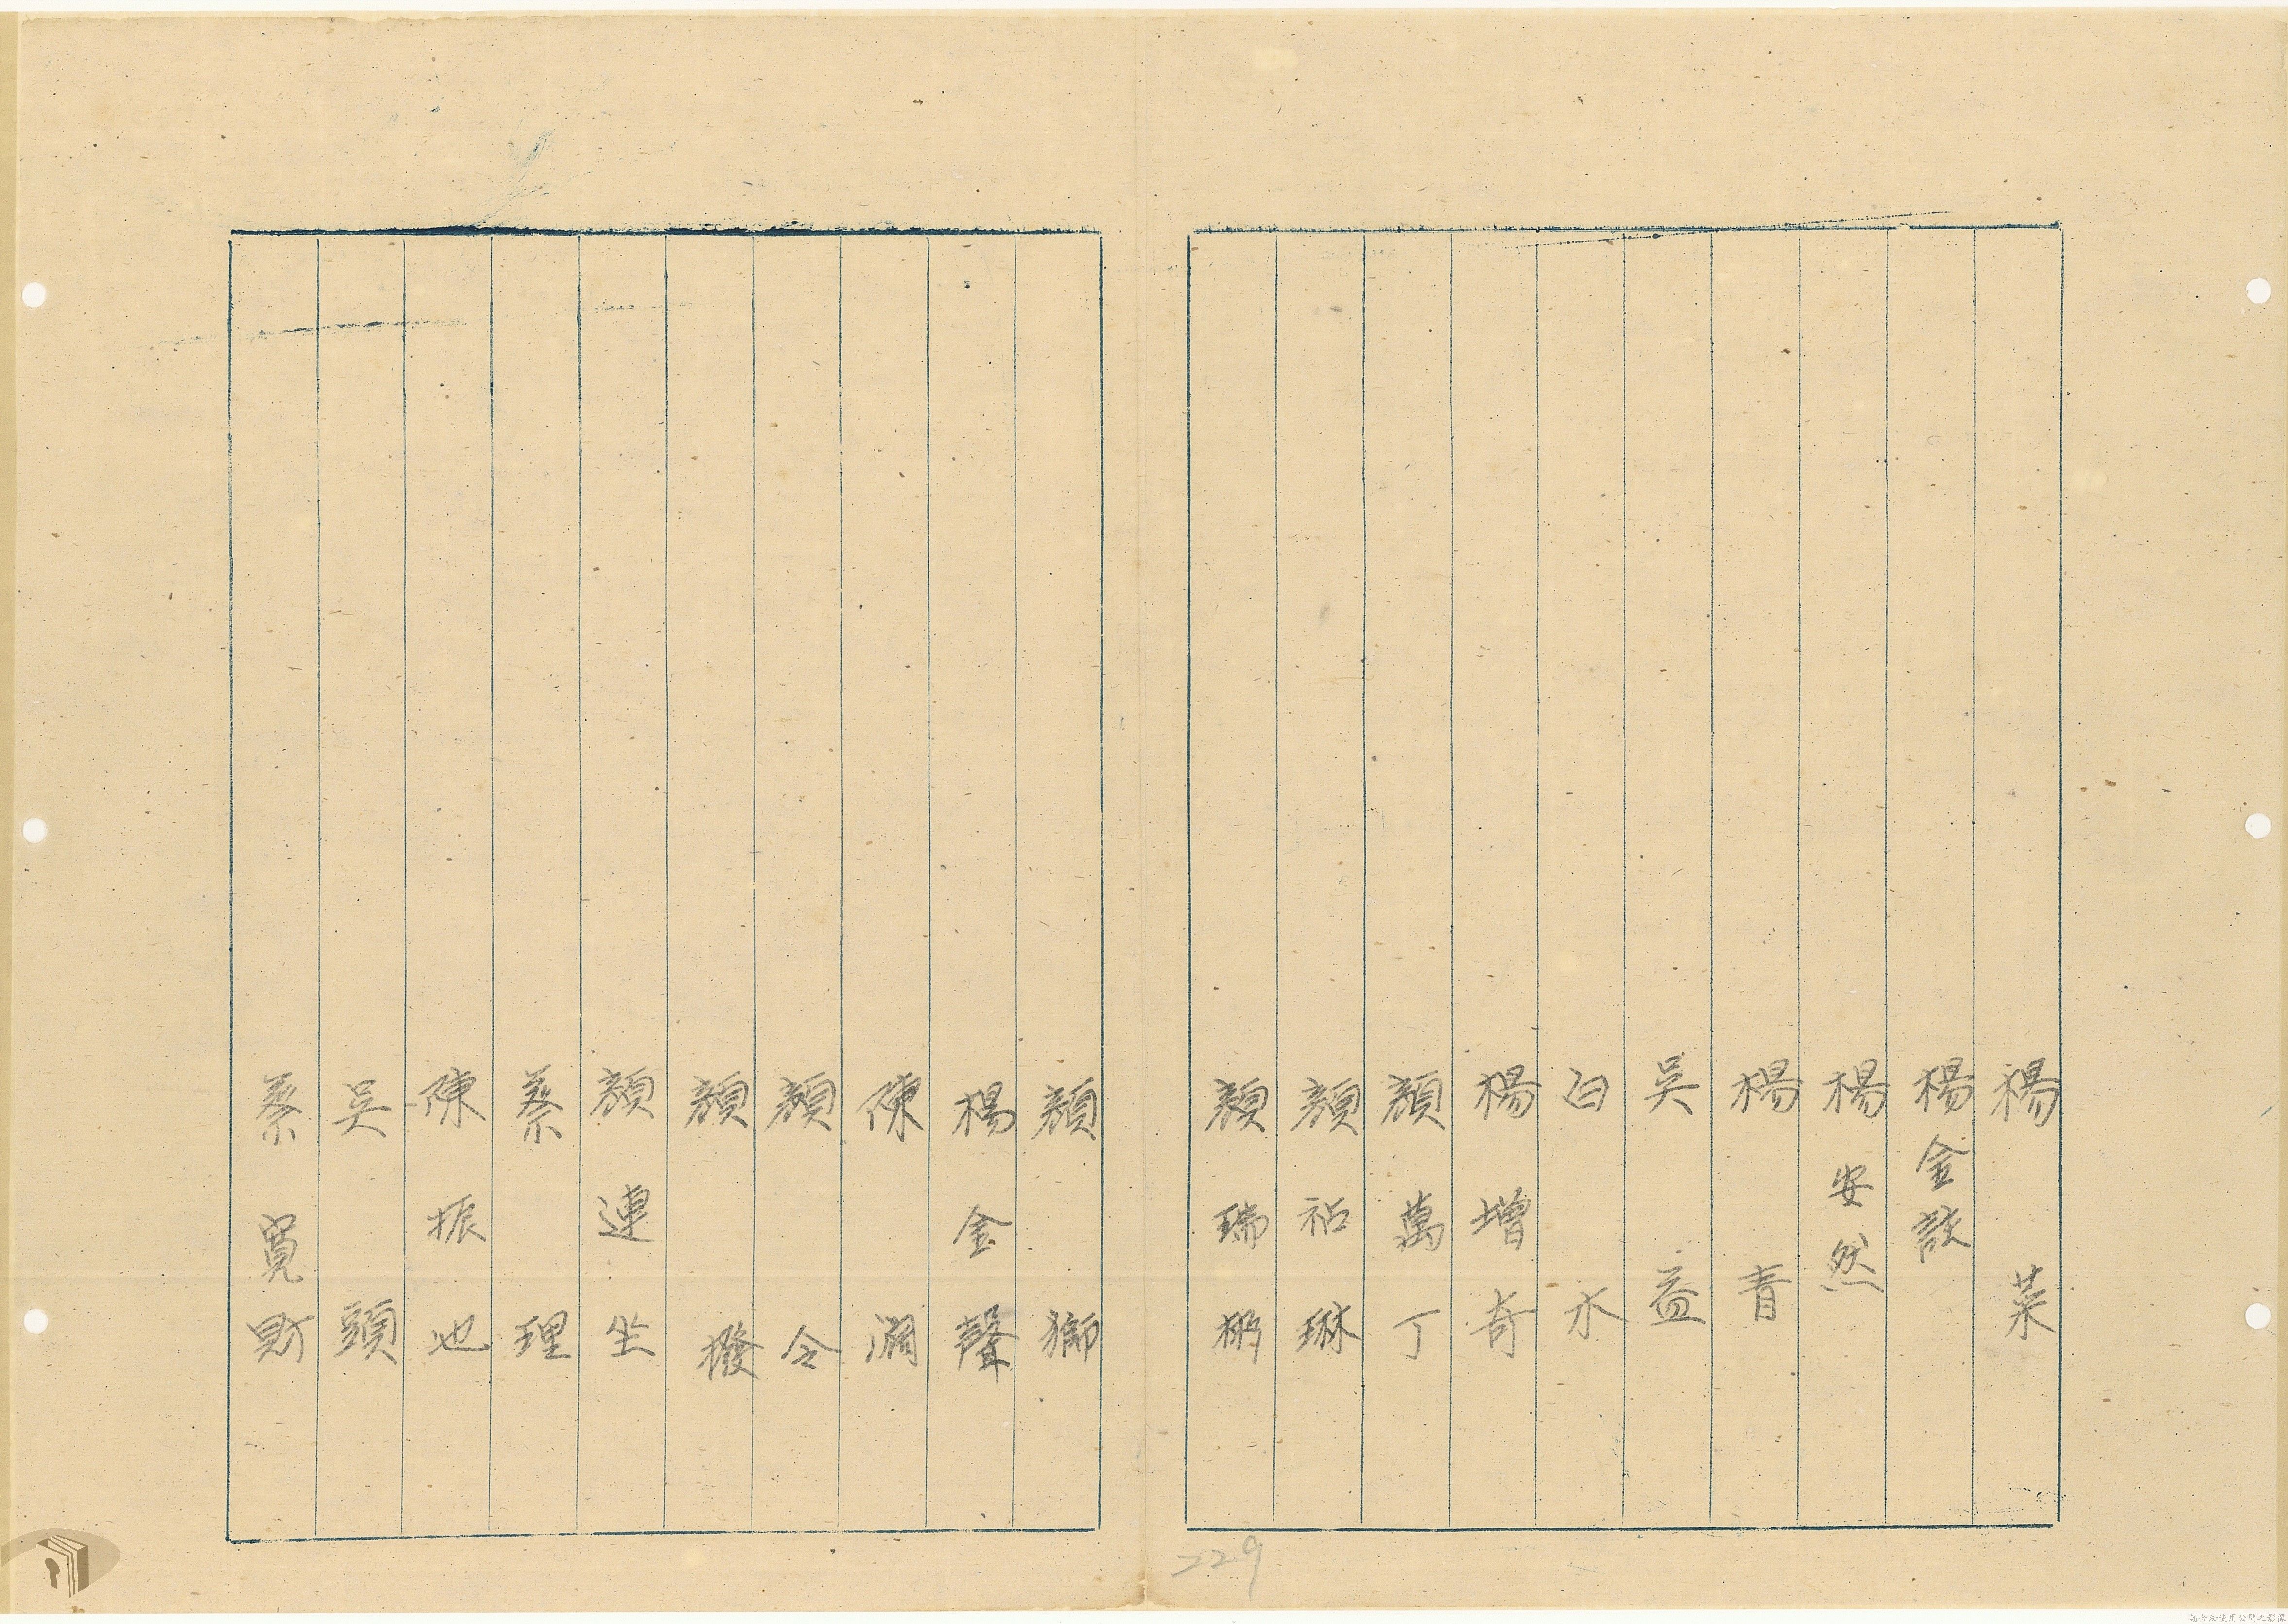 楊　菜
楊金談
楊安然
楊　青
吳　益
白　永
楊增奇
顏萬丁
顏祏琳
顏瑞
顏　獅
楊金聲
陳　澗
顏　令
顏　撥
顏連坐
蔡　理
陳振池
吳　頭
蔡寬財
229
請合法使用公開之影像